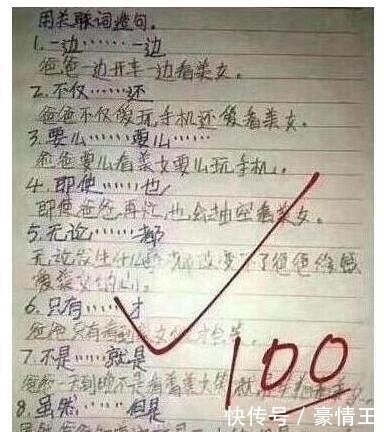 用关联词造句。
1.一边……一边
爸爸一边开车一边看美女。
2.不仅……还
爸爸不仅爱玩手机还爱看美女。
3.要么……要么……
爸爸要么看美女要么玩手机。
4.即使……也
即使爸爸再忙,也会抽空看美女。
5.无论……都
无论发生什么 都改变不了爸爸
美女的心。
6.只有……才
爸爸只有看到美女 才会笑。
7.不是……就是
爸爸一天到晚不是看美女 就是
8.虽然……但是
虽然爸爸
100
快传号/豪情王